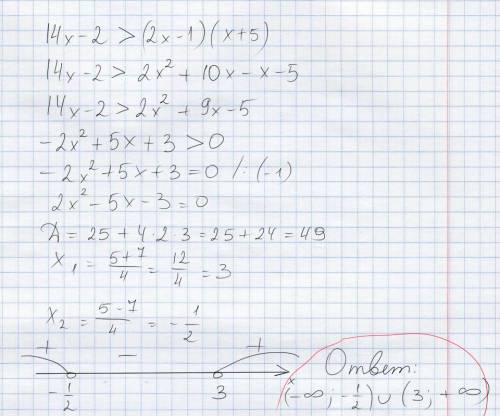 14x-2 > (2x-1)(x+5)
14x-2 > 2x² + 10x - x - 5
14x-2 > 2x² + 9x - 5
-2x² + 5x + 3 > 0
-2x² + 5x + 3 = 0 /·(-1)
2x² - 5x - 3 = 0
Д = 25 + 4·2·3 = 25 + 24 = 49
x₁ = (5+7)/4 = 12/4 = 3
x₂ = (5-7)/4 = -1/2
+ - +
-1/2 3 x
Ответ:
(-∞; -1/2) ∪ (3; +∞)